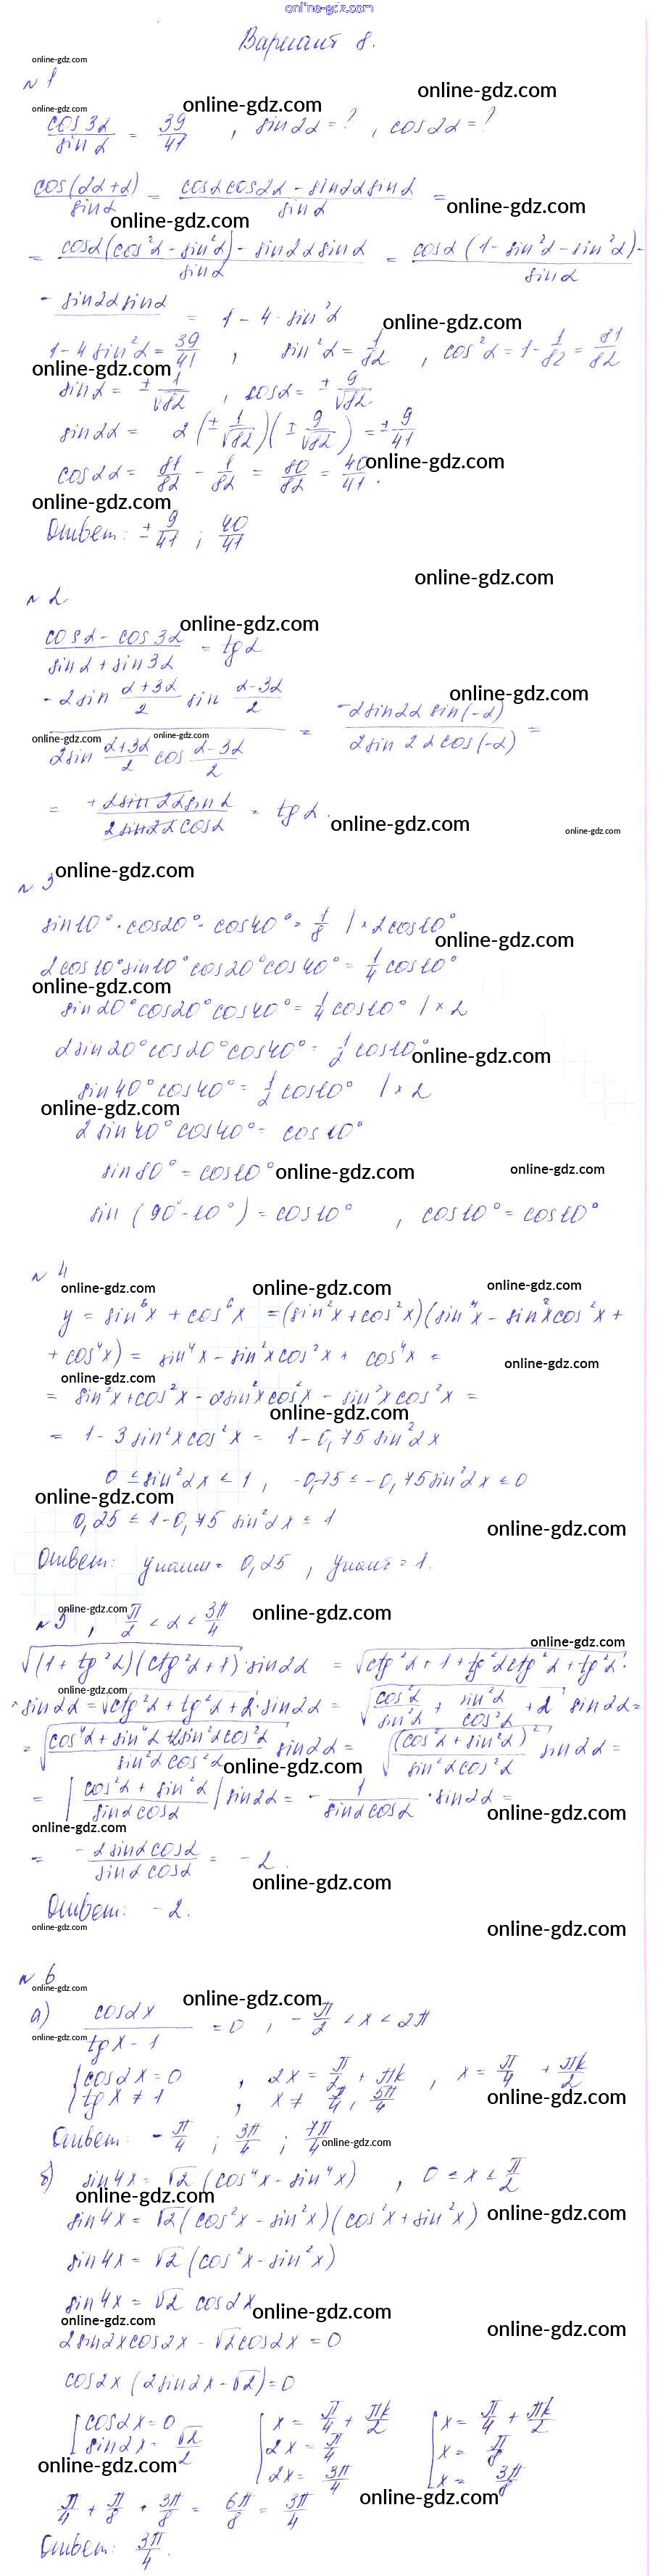 online-gdz.com
Вариант 8.
online-gdz.com
№1
online-gdz.com
online-gdz.com
online-gdz.com
cos3α/sinα = 39/41 , sin2α = ? , cos2α = ?
cos(2α+α)/sinα = (cosαcos2α - sin2αsinα)/sinα =
online-gdz.com
online-gdz.com
= (cosα(cos²α - sin²α) - sin2αsinα)/sinα = (cosα(1 - sin²α - sin²α) -
- sin2αsinα)/sinα = 1 - 4·sin²α
online-gdz.com
1 - 4sin²α = 39/41 , sin²α = 1/82 , cos²α = 1 - 1/82 = 81/82
online-gdz.com
sinα = ± 1/√82 , cosα = ± 9/√82.
sin2α = 2(± 1/√82)(± 9/√82) = ± 9/41
cos2α = 81/82 - 1/82 = 80/82 = 40/41.
online-gdz.com
online-gdz.com
Ответ: ± 9/41 ; 40/41
online-gdz.com
№2
online-gdz.com
(cosα - cos3α)/(sinα + sin3α) = tgα
online-gdz.com
(-2sin (α+3α)/2 sin (α-3α)/2)/(2sin (α+3α)/2 cos (α-3α)/2) = (-2sin2α sin(-α))/(2sin2αcos(-α)) =
online-gdz.com
online-gdz.com
= (+2sin2αsinα)/(2sin2αcosα) = tgα.
online-gdz.com
online-gdz.com
online-gdz.com
№3
sin10°·cos20°·cos40° = 1/8 |×2cos10°
online-gdz.com
2cos10°sin10°cos20°cos40° = 1/4 cos10°
online-gdz.com
sin20°cos20°cos40° = 1/4 cos10° |×2
2sin20°cos20°cos40° = 1/2 cos10°
online-gdz.com
sin40°cos40° = 1/2 cos10° |×2
online-gdz.com
2sin40°cos40° = cos10°
sin80° = cos10°
online-gdz.com
online-gdz.com
sin(90°-10°) = cos10° , cos10° = cos10°
№4
online-gdz.com
online-gdz.com
online-gdz.com
y = sin⁶x + cos⁶x = (sin²x + cos²x)(sin⁴x - sin²xcos²x +
+ cos⁴x) = sin⁴x - sin²xcos²x + cos⁴x =
online-gdz.com
online-gdz.com
= sin²x + cos²x - 2sin²xcos²x - sin²xcos²x =
online-gdz.com
= 1 - 3sin²xcos²x = 1 - 0,75sin²2x
0 ≤ sin²2x ≤ 1, -0,75 ≤ -0,75sin²2x ≤ 0
online-gdz.com
0,25 ≤ 1 - 0,75sin²2x ≤ 1
online-gdz.com
Ответ: yнаим = 0,25 , yнаиб = 1.
online-gdz.com
online-gdz.com
№5 , π/2 < α < 3π/4
online-gdz.com
√((1 + tg²α)(ctg²α + 1))·sin2α = √(ctg²α + 1 + tg²αctg²α + tg²α)·
online-gdz.com
·sin2α = √(ctg²α + tg²α + 2)·sin2α = √(cos²α/sin²α + sin²α/cos²α + 2) sin2α =
= √((cos⁴α + sin⁴α + 2sin²αcos²α)/(sin²αcos²α)) sin2α = √((cos²α + sin²α)²/(sin²αcos²α)) sin2α =
online-gdz.com
= |(cos²α + sin²α)/(sinαcosα)| sin2α = - 1/(sinαcosα) · sin2α =
online-gdz.com
online-gdz.com
= (-2sinαcosα)/(sinαcosα) = -2.
online-gdz.com
Ответ: -2.
online-gdz.com
online-gdz.com
№6
online-gdz.com
online-gdz.com
а) cos2x/(tgx - 1) = 0 , -π/2 < x < 2π
online-gdz.com
{cos2x = 0 , 2x = π/2 + πk , x = π/4 + πk/2
{tgx ≠ 1 , x ≠ π/4, 5π/4
online-gdz.com
Ответ: -π/4 ; 3π/4 ; 7π/4
online-gdz.com
б) sin4x = √2(cos⁴x - sin⁴x) , 0 ≤ x ≤ π/2
online-gdz.com
online-gdz.com
sin4x = √2(cos²x - sin²x)(cos²x + sin²x)
sin4x = √2(cos²x - sin²x)
sin4x = √2 cos2x
online-gdz.com
online-gdz.com
online-gdz.com
2sin2xcos2x - √2cos2x = 0
cos2x(2sin2x - √2) = 0
[cos2x = 0 [x = π/4 + πk/2 [x = π/4 + πk/2
[sin2x = √2/2 [2x = π/4 [x = π/8
[2x = 3π/4 [x = 3π/8
online-gdz.com
online-gdz.com
π/4 + π/8 + 3π/8 = 6π/8 = 3π/4
Ответ: 3π/4.